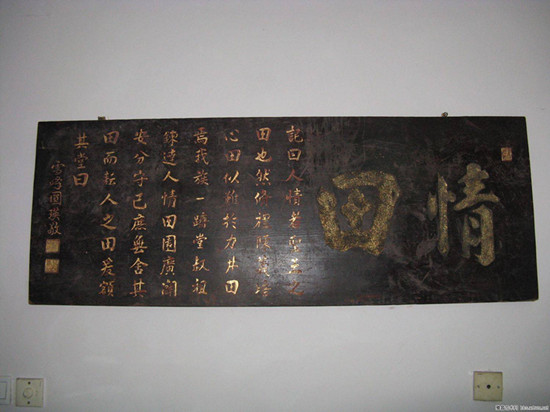 情田
記曰人情者聖王之
田也然修禮陳義治
心田似難於力井田
焉我族一躋堂叔祖
練達人情田園廣闢
安分守己庶無舍其
田而耘人之田爰額
其堂曰
國璜敬